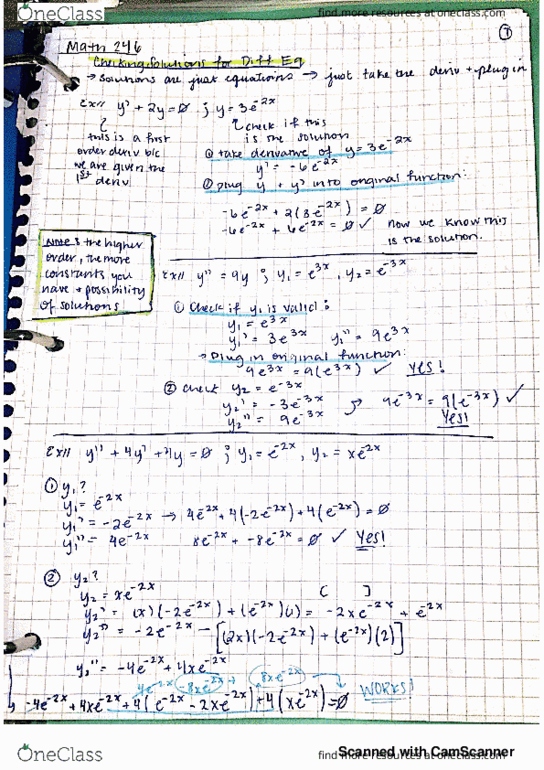 OneClass
find more resources at oneclass.com
①
Math 246
Checking Solutions for Diff Eq
→ solutions are just equations → just take the deriv + plug in
Ex// y' + 2y = 0 ; y = 3e^-2x
this is a first
order deriv b/c
we are given the
1st deriv.
check if this
is the solution
① take derivative of y = 3e^-2x
y' = -6e^-2x
② plug y + y' into original function:
-6e^-2x + 2(3e^-2x) = 0
-6e^-2x + 6e^-2x = 0 ✓
now we know this
is the solution.
Note: the higher
order, the more
constants you
have + possibility
of solutions
Ex// y'' = 9y ; y₁ = e^3x, y₂ = e^-3x
① Check if y₁ is valid:
y₁ = e^3x
y₁' = 3e^3x y₁'' = 9e^3x
→ Plug in original function:
9e^3x = 9(e^3x) ✓ Yes!
② check y₂ = e^-3x
y₂' = -3e^-3x
y₂'' = 9e^-3x
9e^-3x = 9(e^-3x) ✓
Yes!
Ex// y'' + 4y' + 4y = 0 ; y₁ = e^-2x, y₂ = xe^-2x
① y₁?
y₁ = e^-2x
y₁' = -2e^-2x → 4e^-2x + 4(-2e^-2x) + 4(e^-2x) = 0
y₁'' = 4e^-2x 8e^-2x + -8e^-2x = 0 ✓ Yes!
② y₂?
y₂ = xe^-2x
y₂' = (x)(-2e^-2x) + (e^-2x)(1) = -2xe^-2x + e^-2x
y₂'' = -2e^-2x - [(2x)(-2e^-2x) + (e^-2x)(2)]
y₂'' = -4e^-2x + 4xe^-2x
4e^-2x -8xe^-2x + 8xe^-2x
-4e^-2x + 4xe^-2x + 4(e^-2x - 2xe^-2x) + 4(xe^-2x) = 0
WORKS!
Scanned with CamScanner
OneClass
find more resources at oneclass.com